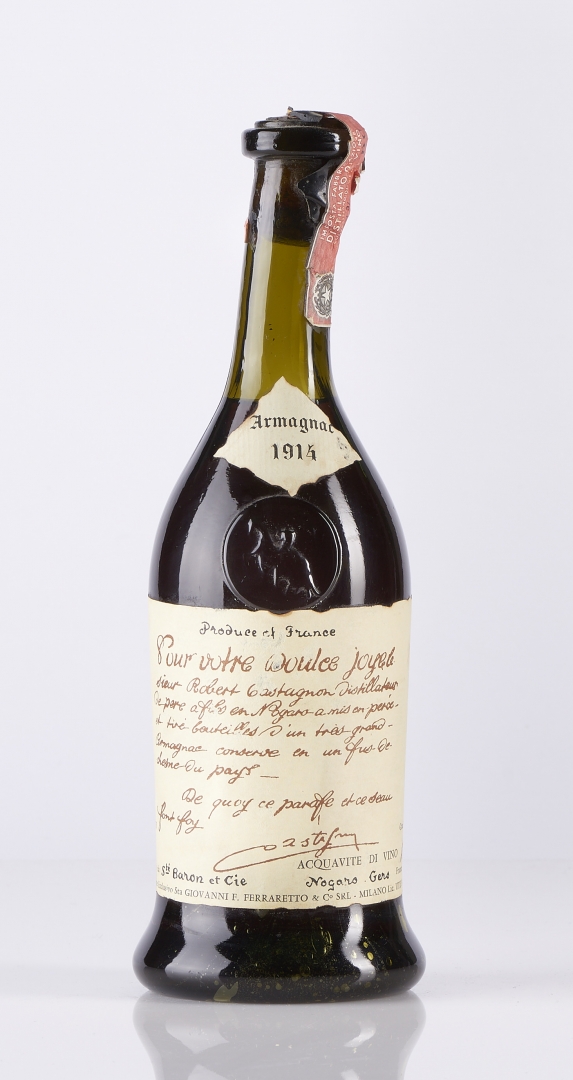 DISTILLATO
Armagnac
1914
Produce of France
Pour votre doulce joyale
sieur Robert Castagnon Distillateur
de père à fils en Nogaro a mis en perce
et tiré bouteilles d'un très grand
Armagnac conserve en un fus de
chesne du pays
De quoy ce parafe et ce seau
font foy
Castagnon
ACQUAVITE DI VINO
Sté Baron et Cie Nogaro. Gers
Esclusivo Sta GIOVANNI F. FERRARETTO & Cº SRL - MILANO